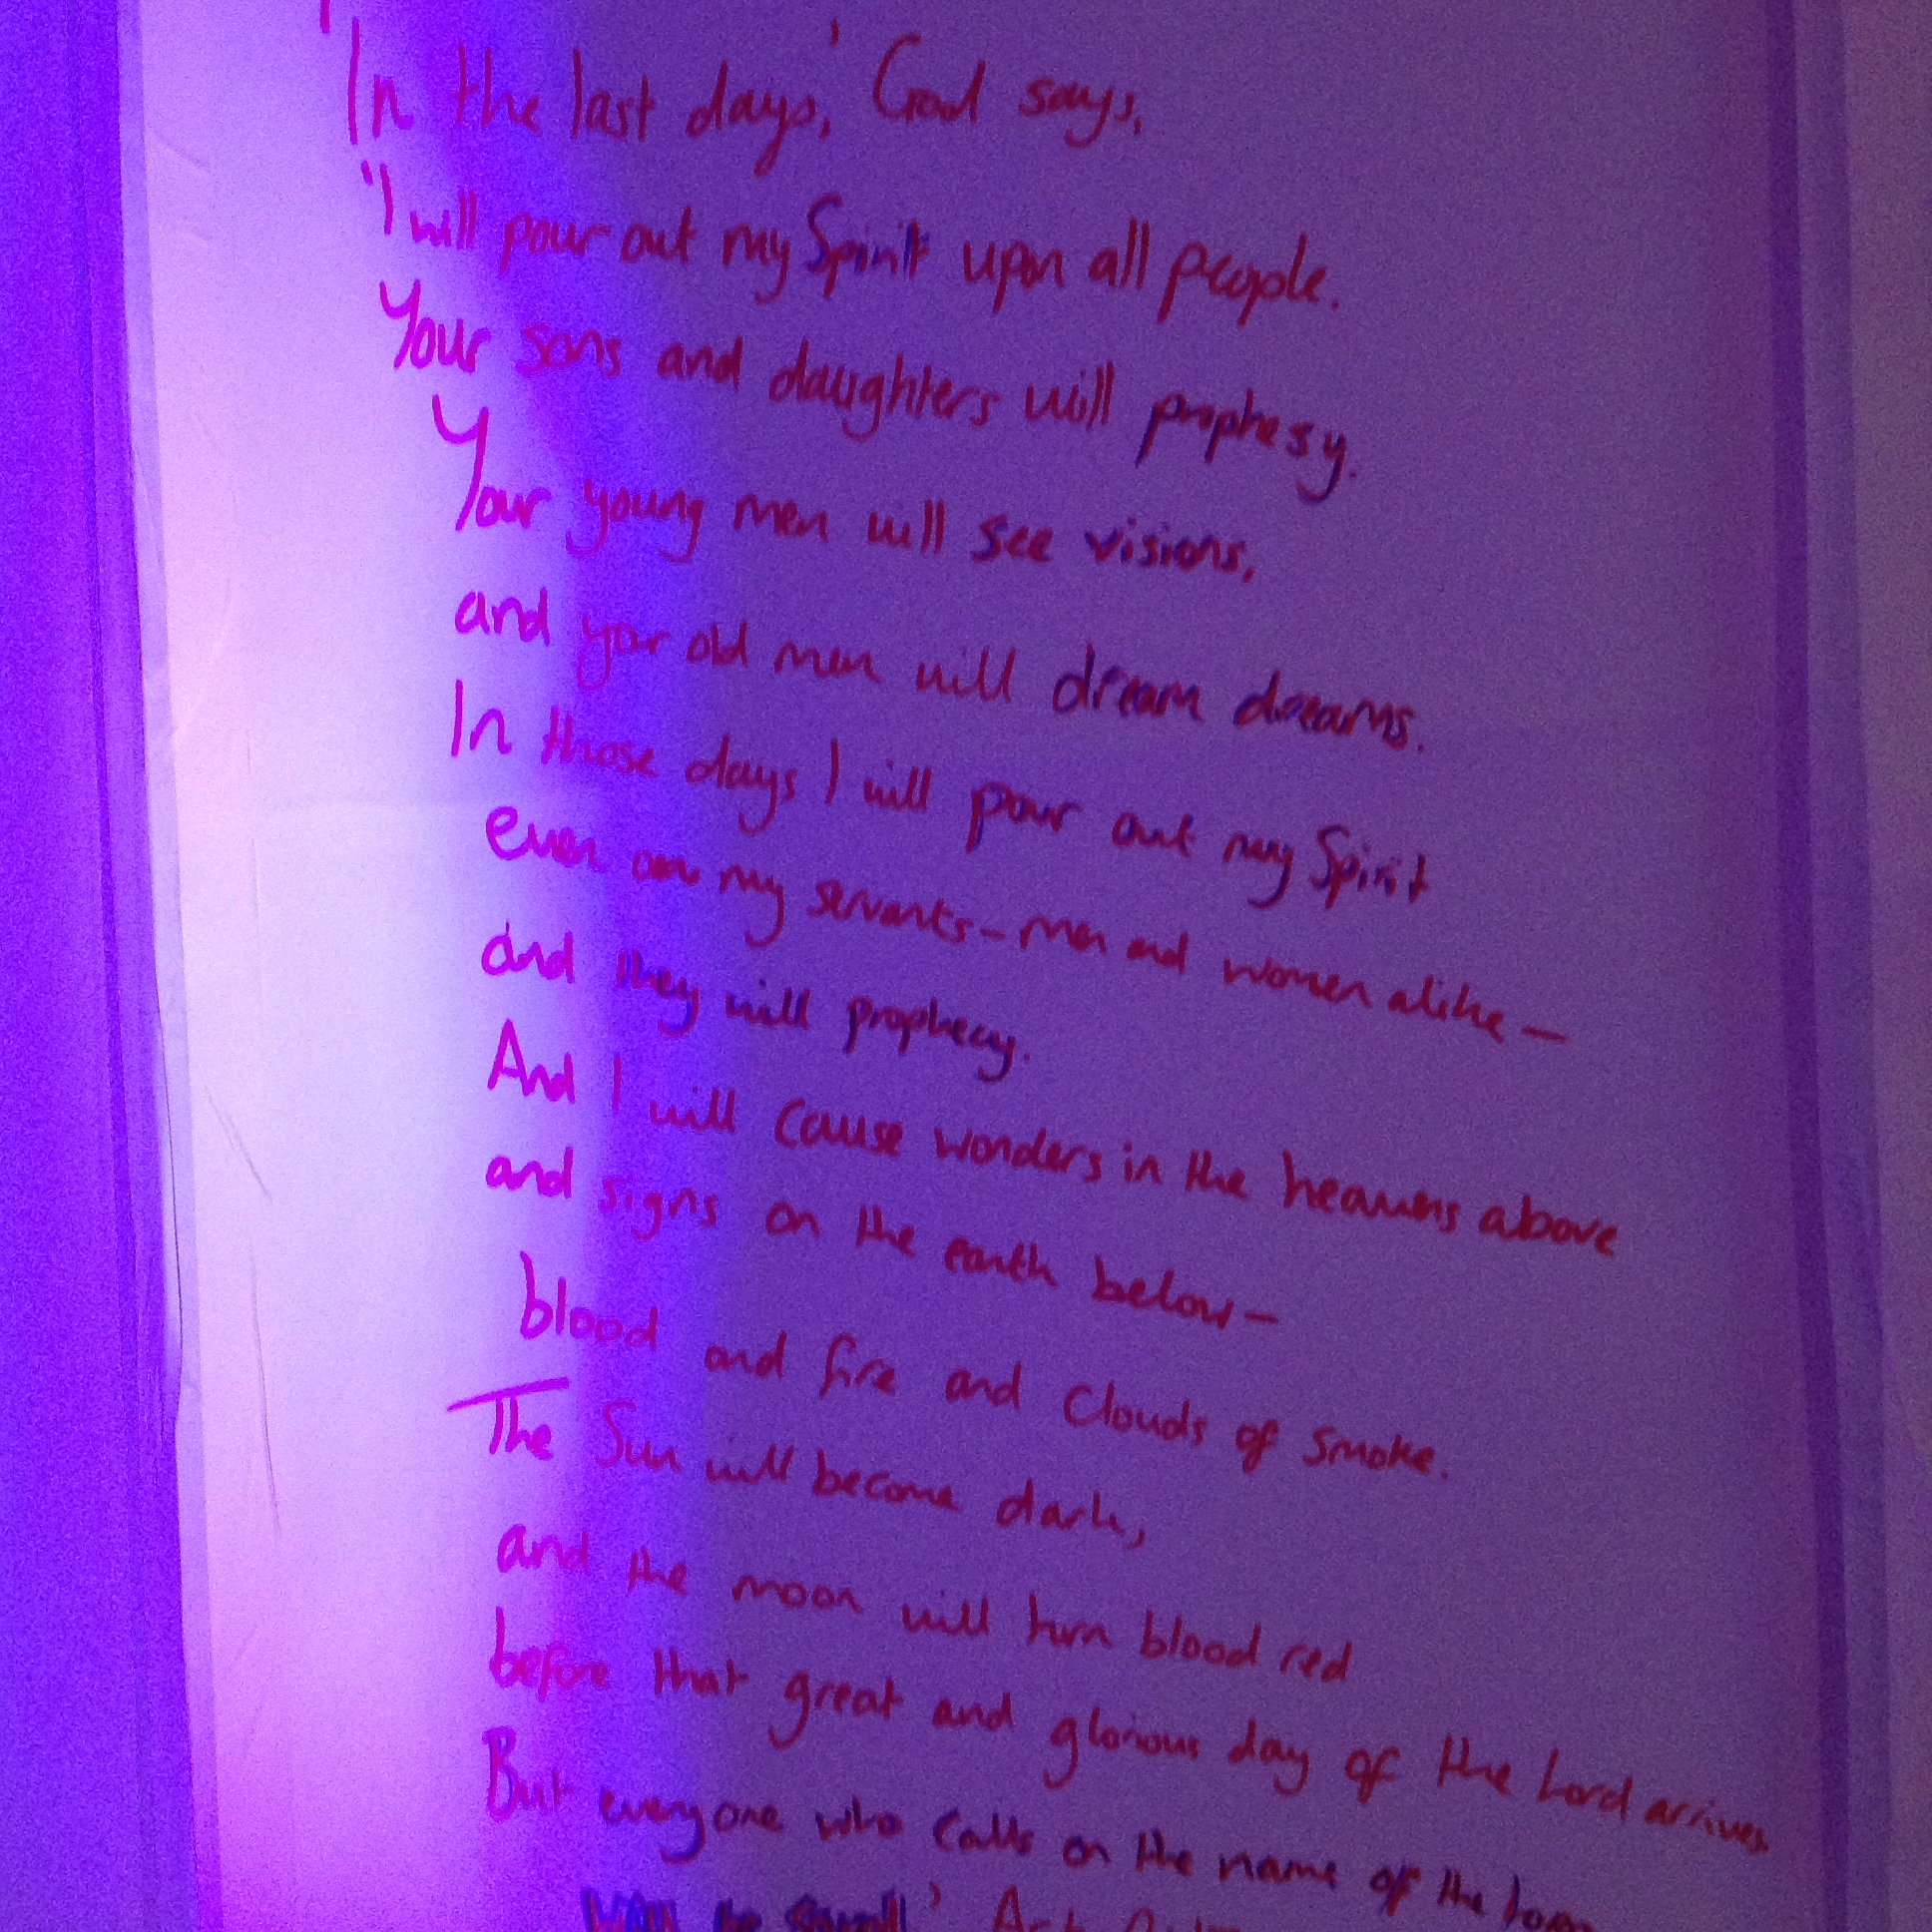 'In the last days,' God says,
"I will pour out my Spirit upon all people.
Your sons and daughters will prophesy.
Your young men will see visions,
and your old men will dream dreams.
In those days I will pour out my Spirit
even on my servants – men and women alike –
and they will prophecy.
And I will cause wonders in the heavens above
and signs on the earth below –
blood and fire and clouds of smoke.
The Sun will become dark,
and the moon will turn blood red
before that great and glorious day of the Lord arrives.
But everyone who calls on the name of the Lord
will be saved.'